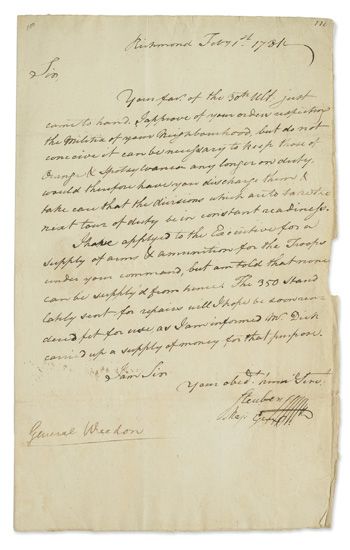 Richmond Feby 1st 1781
Sir
Your favr. of the 30th Ult. just
came to hand. I approve of your orders respecting
the Militia of your Neighbourhood, but do not
conceive it can be necessary to keep those of
Orange & Spotsylvania any longer on duty.
would therefore have you discharge them &
take care that the divisions which are to take the
next tour of duty be in constant readiness.
I have applyed to the Executive for a
supply of arms & ammunition for the Troops
under your command, but am told that none
can be supplyd from hence. The 350 Stand
lately sent for repairs will I hope be soon ren
dered fit for use as I am informed Mr. Dick
carried up a supply of money for that purpose.
I am Sir
Your obedt. Servt.
Steuben
Maj. Genl
General Weedon